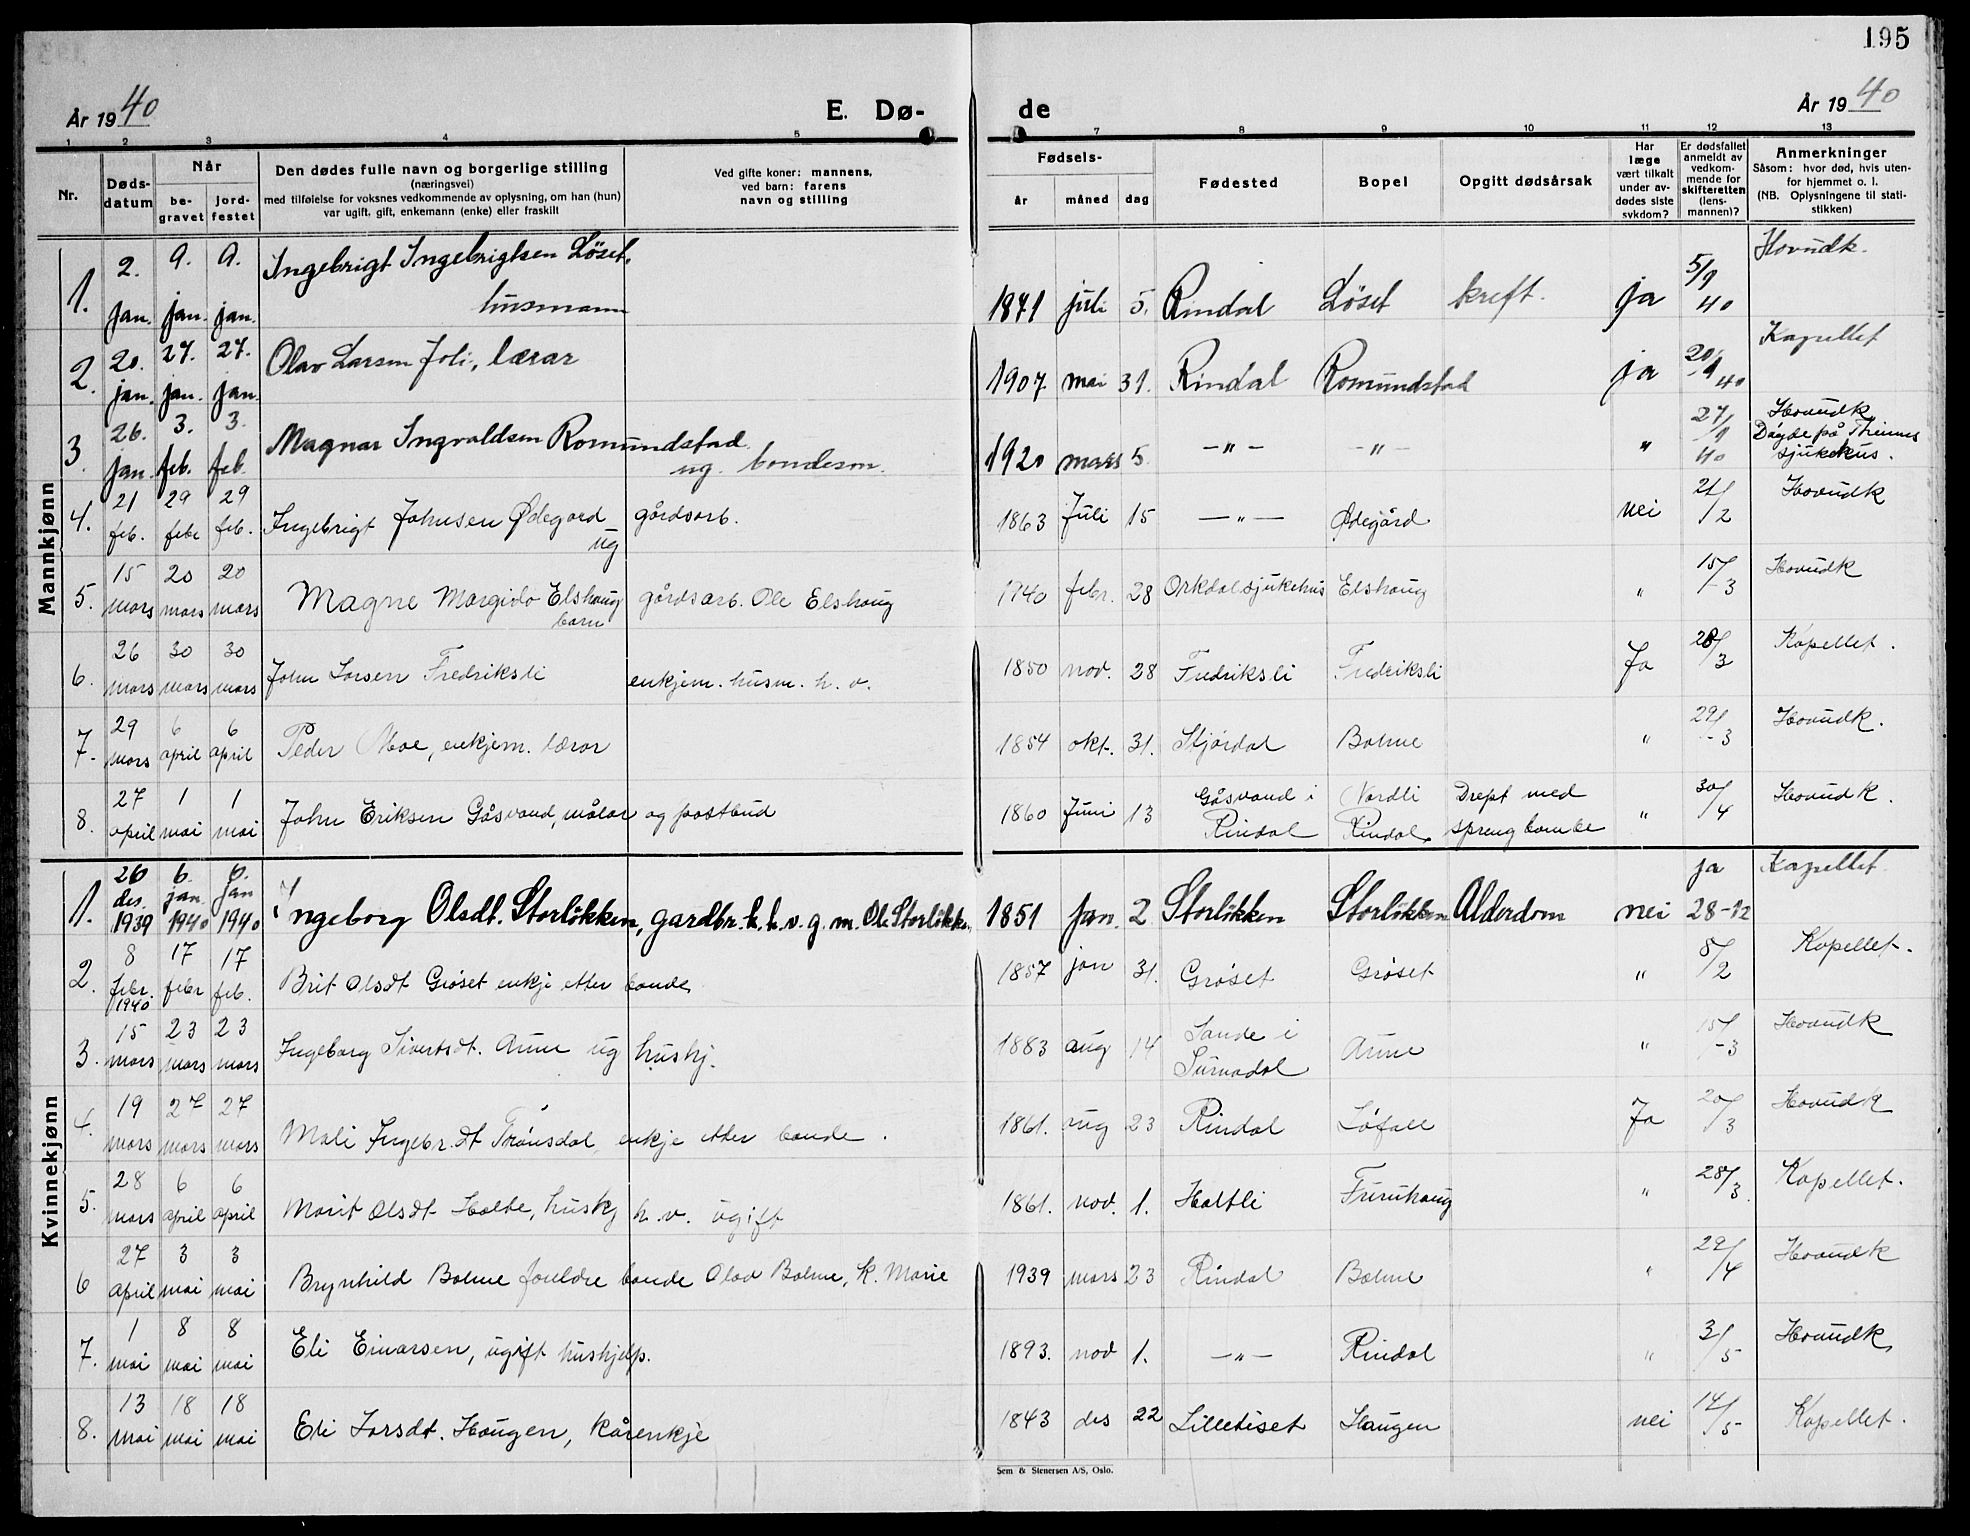 195
År 1940
E. Dø-
de
År 1940
1 2 3 4 5 7 8 9 10 11 12 13
Nr. Døds-datum Når be-gravet jord-festet Den dødes fulle navn og borgerlige stilling (næringsvei) med tilføielse for voksnes vedkommende av oplysning, om han (hun) var ugift, gift, enkemann (enke) eller fraskilt Ved gifte koner: mannens, ved barn: farens navn og stilling Fødsels- år måned dag Fødested Bopel Opgitt dødsårsak Har læge vært tilkalt under av-dødes siste sykdom? Er dødsfallet anmeldt av vedkom-mende for skifteretten (lens-mannen)? Anmerkninger Såsom: hvor død, hvis uten-for hjemmet o. l. (NB. Oplysningene til stati-stikken)
Mannkjønn
1. 2. jan. 9. jan. 9. jan. Ingebrigt Ingebrigtsen Løset, husmann 1871 juli 5. Rindal Løset kreft. ja 5/9 40 Hovudk.
2. 20. jan. 27. jan. 27. jan. Olav Larsen Joli, lærar 1907. mai 31. Rindal Romundstad ja 20/1 40 Kapellet
3. 26. jan. 3. feb. 3. feb. Magnar Ingvaldsen Romundstad ug. bondeson. 1920 mars 5. —"— —"— " 27/1 40 Hovudk. Døyde på sjukehus.
4. 21 feb. 29 febr 29 feb. Ingebrigt Johnsen Ødegard ug gårdsarb. 1863 Juli 15 —"— Ødegård nei 21/2 Hovudk
5. 15 mars 20 mars 20 mars Magne Margido Elshaug barn gårdsarb. Ole Elshaug 1940 febr. 28 Orkdal sjukehus Elshaug " 15/3 Hovudk
6. 26 mars 30 mars 30 mars John Larsen Fredriksli enkjem. husm. h. v. 1850 nov. 28 Fredriksli Fredriksli Ja 28/3 Kapellet.
7. 29 mars 6 april 6 april Peder Moe, enkjem. lærar 1854 okt. 31. Stjørdal Bolme " 29/3 Hovudk.
8. 27 april 1 mai 1 mai John Eriksen Gåsvand, målar og postbud 1860 Juni 13 Gåsvand i Rindal Nordli Rindal Drept med sprengbombe " 30/4 Hovudk.
Kvinnekjønn
1. 26 des. 1939 6. jan. 1940 6. jan 1940 Ingeborg Olsdt. Storløkken, gardbr.k. h.v. g. m. Ole Storløkken 1851 jan. 2. Storløkken Storløkken Alderdom nei ja 28-12 Kapellet
2. 8 febr. 1940 17 febr 17 feb. Brit Olsdt Grøset enkje etter bonde 1857 jan 31. Grøset Grøset " 8/2 Kapellet.
3. 15 mars 23 mars 23 mars Ingeborg Sivertsdt. Aune ug hushj. 1883 aug 14 Sande i Surnadal Aune " 15/3 Hovudk
4. 19 mars 27 mars 27 mars Mali Ingebr.dt Trønsdal enkje etter bonde. 1861. aug 23 Rindal Løfall Ja 20/3 Hovudk
5. 28 mars 6 april 6 april Marit Olsdt Holte, huskj h. v. ugift 1861. nov. 1. Holtli Furuhaug " 28/3. Kapellet.
6 27 april 3 mai 3 mai Brynhild Bolme foreldre bonde Olav Bolme, k. Marie 1939 mars 23 Rindal Bolme " 29/4 Hovudk
7. 1 mai 8 mai 8 mai Eli Einarsen, ugift hushjelp. 1893. nov 1. —"— Rindal " 3/5 Hovudk
8. 13 mai 18 mai 18 mai Eli Larsdt. Haugen, kårenkje 1843 des 22 Lilletiset Haugen nei 14/5 Kapellet.
Sem & Stenersen A/S, Oslo.